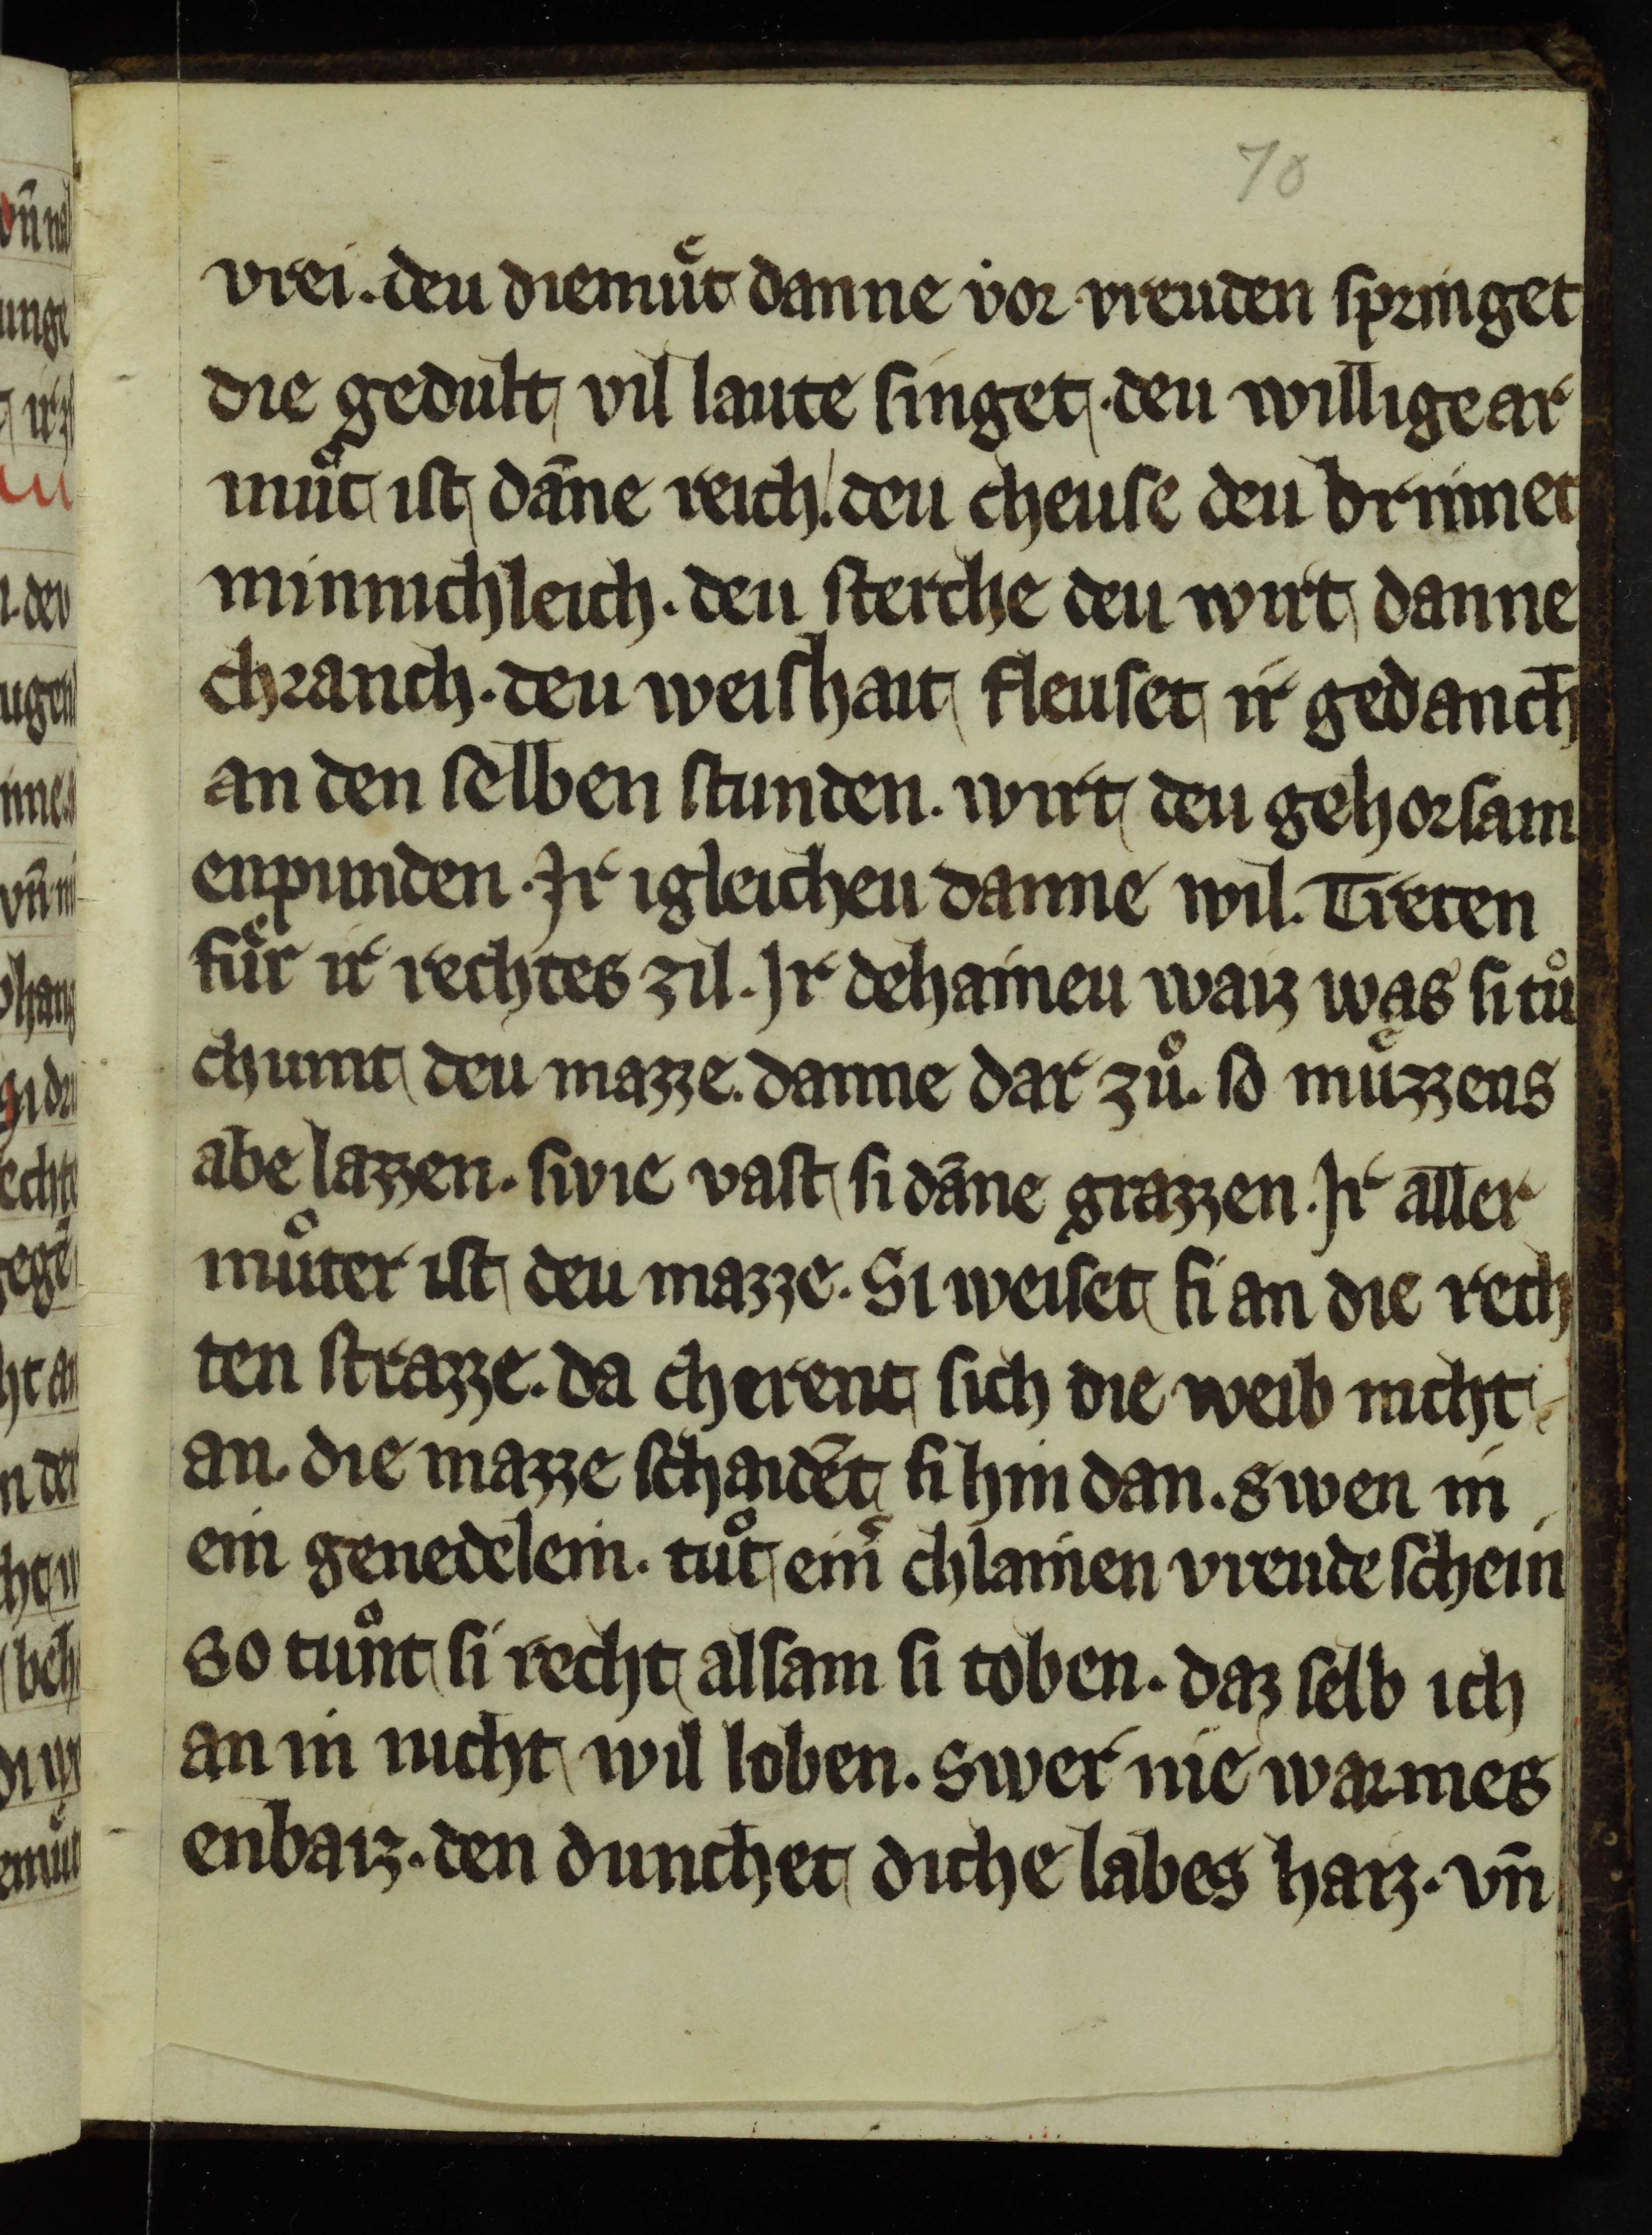 70
vrei. deu diemuͤt danne vor vreuden springet
die gedult vil laute singet. deu willige ar
muͤt ist dāne reich. deu cheuse deu brinnet
minnichleich. deu sterche deu wirt danne
chranch. deu weishait fleuset ir gedanch
an den selben stunden. wirt deu gehorsam
enpunden. Ir igleicheu danne wil. Treten
fuͤr ir rechtes zil. Ir dehaineu waiz was si tuͦ
chumt deu mazze. danne dar zuͦ. so muͤzzens
abe lazzen. swie vast si dāne grazzen. Ir aller
muͦter ist deu mazze. Si weiset si an die rech
ten strazze. da cherent sich die weib nicht
an. die mazze schaidēt si hin dan. swen in
ein genedelein. tuͦt ein chlainen vreude schein
so tuͦnt si recht alsam si toben. daz selb ich
an in nicht wil loben. swer nie warmes
enbaiz. den dunchet diche labes haiz. vn̄